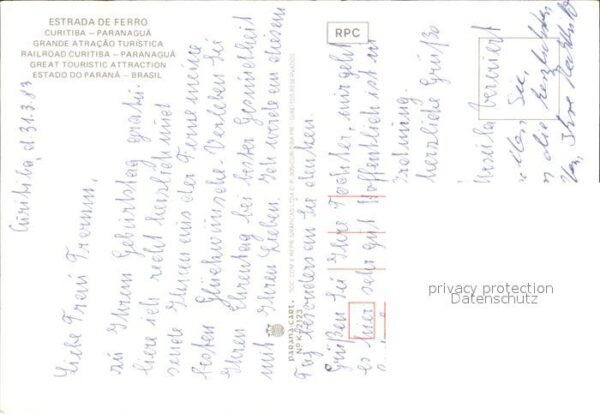 ESTRADA DE FERRO
CURITIBA – PARANAGUÁ
GRANDE ATRAÇÃO TURÍSTICA
RAILROAD CURITIBA – PARANAGUÁ
GREAT TOURISTIC ATTRACTION
ESTADO DO PARANÁ – BRASIL
RPC
Curitiba, d 31.3.83
Liebe Frau
zu Ihrem Geburtstag gratu-
liere ich recht herzlich und
sende Ihnen aus der Ferne meine
besten Glückwünsche. Verleben Sie
Ihren Ehrentag bei bester Gesundheit
mit Ihren Lieben. Ich werde an diesem
Tag besonders an Sie denken.
Grüßen Sie Ihre Tochter, mir geht
es hier sehr gut. Hoffentlich ist in
Ordnung.
herzliche Grüße
PARANÁ CART.
privacy protection
Datenschutz